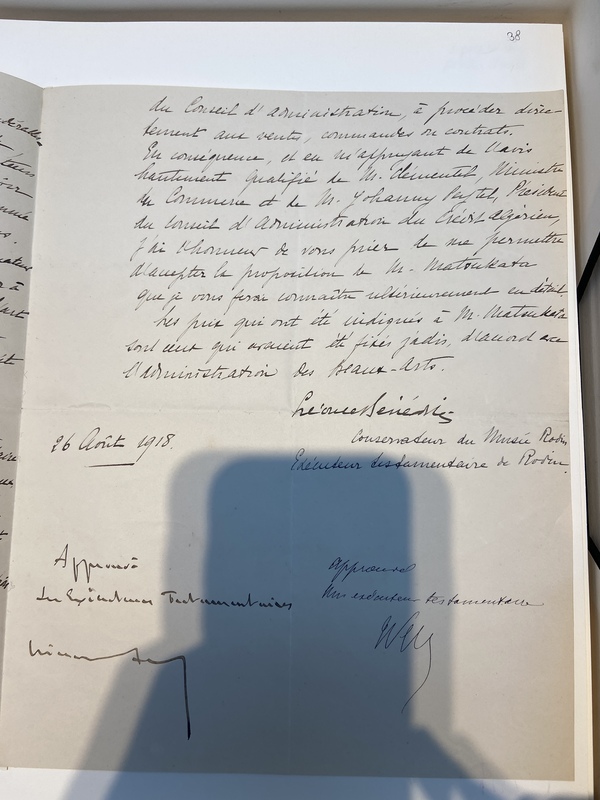 38
du Conseil d'administration, à procéder direc-
tement aux vents, commandes ou contrats.
En conséquence, et en m'appuyant de l'avis
hautement qualifié de M. Clémentel, Ministre
du Commerce et de M. Johanny Peytel, Président
du Conseil d'Administration du Crédit Algérien,
j'ai l'honneur de vous prier de me permettre
d'accepter la proposition de M. Matsukata
que je vous ferai connaître ultérieurement en détail.
Les prix qui ont été indiqués à M. Matsukata
sont ceux qui avaient été fixés jadis, d'accord avec
l'administration des Beaux-Arts.
Léonce Bénédite
26 Août 1918.
Conservateur du Musée Rodin
Exécuteur testamentaire de Rodin.
Approuvé
Les Exécuteurs Testamentaires
approuvé
Un exécuteur testamentaire